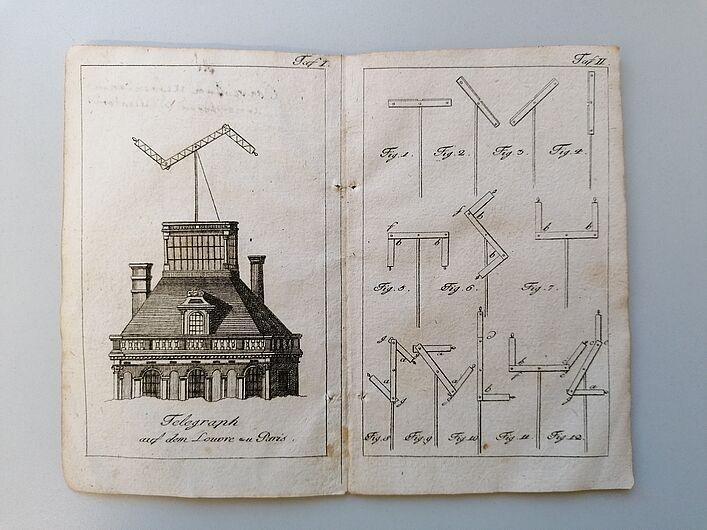 Taf I.
Telegraph
auf dem Louvre zu Paris.
Taf II
Fig. 1. Fig. 2. Fig. 3. Fig. 4.
f b b
f b b
b b
Fig. 5. Fig. 6. Fig. 7.
g a c
a b a
g b
Fig. 8 Fig. 9 Fig. 10 Fig. 11 Fig. 12